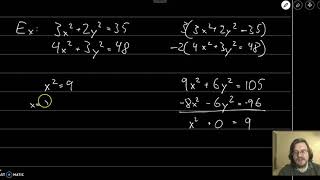 Ex: 3x²+2y²=35
4x²+3y²=48
3(3x²+2y²=35)
-2(4x²+3y²=48)
x²=9
x=
9x²+6y²=105
-8x²-6y²=-96
x²+0=9